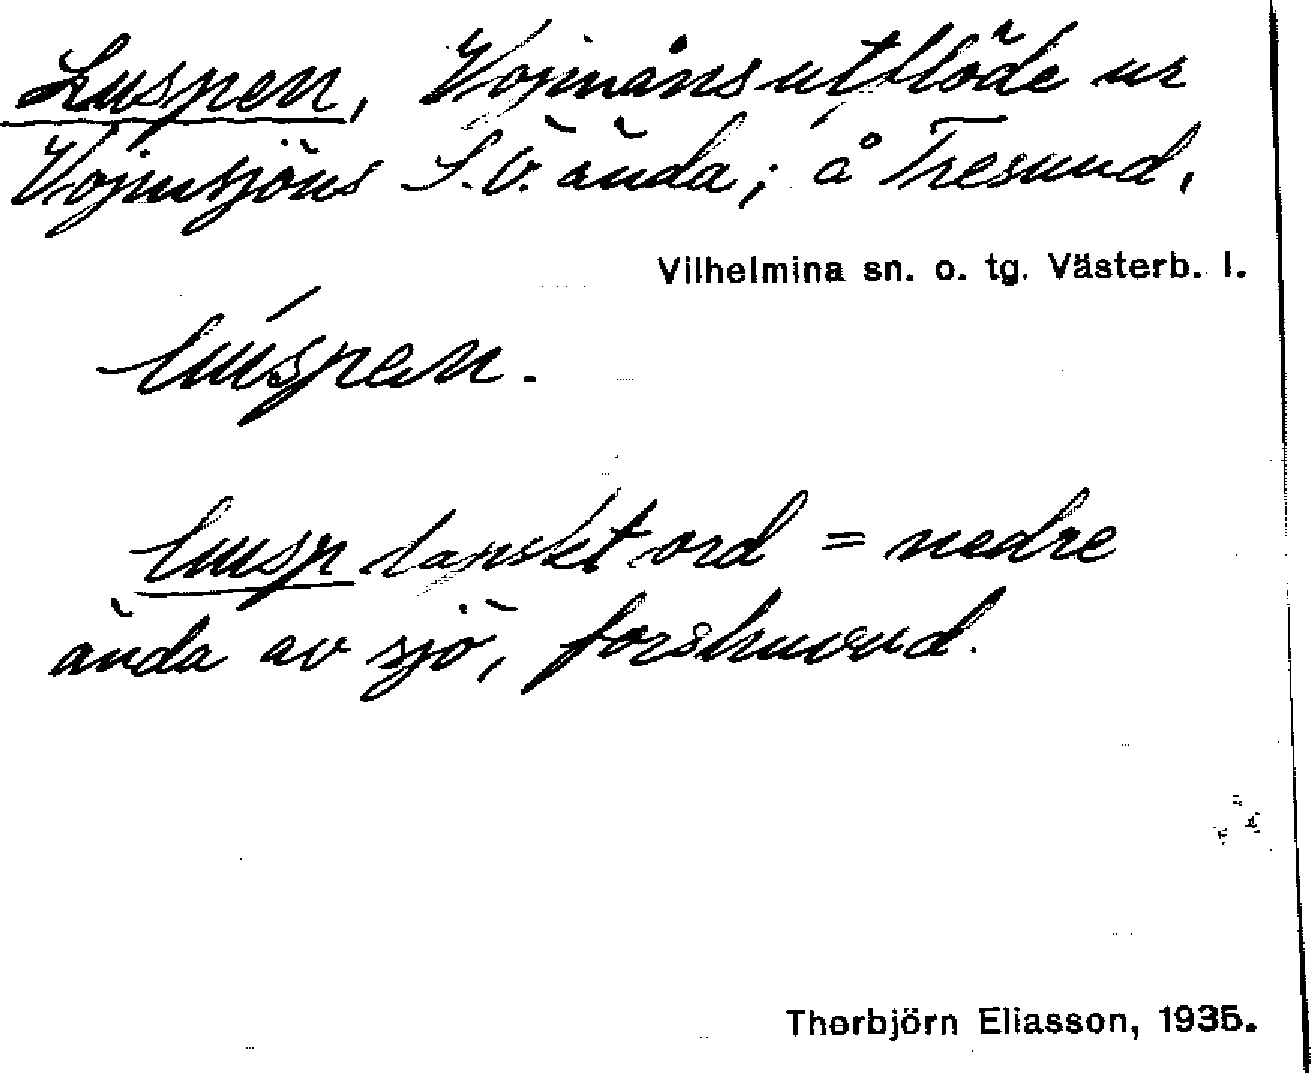 Luspen, Vojmåns utflöde ur
Vojmsjöns S.Ö. ända; å Tresund,
Vilhelmina sn. o. tg. Västerb. l.
luspen.
lusp lapskt ord = nedre
ända av sjö, forshuvud.
Thorbjörn Eliasson, 1935.